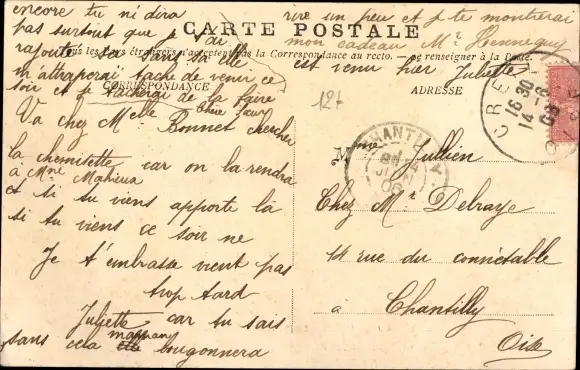 encore tu ni dira
pas surtout que je t'ai
rajouté ça sans ça elle
m'attraperai tache de venir ce
soir et je tacherai de la faire
rire un peu et je te montrerai
mon cadeau Mr Hennequy
est venu hier Juliette
CARTE POSTALE
Tous les pays étrangers n'acceptent pas la Correspondance au recto. — Se renseigner à la Poste.
CORRESPONDANCE
ADRESSE
127
CREIL
16 30
14 -8
06
CHANTILLY
06
Va chez Melle Bonnet chercher
la chemisette car on la rendra
à Mme Mahieux
et si tu viens apporte la
si tu viens ce soir ne
Je t'embrasse vient pas
trop tard
Juliette car tu sais
sans cela maman bougonnera
Mme Jullien
Chez Mr Delraye
14 rue du connétable
à Chantilly
Oise